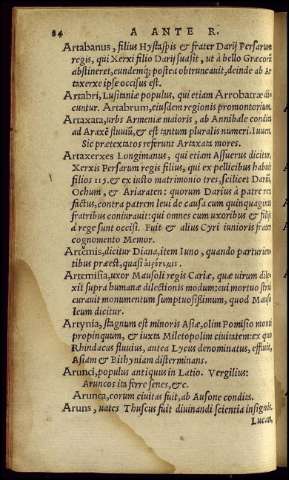 84 A ANTE R.
Artabanus, filius Hystaspis & frater Darij Persarum
regis, qui Xerxi filio Darij suasit, ut à bello Græcorū
abstineret, eundemq; postea obtruncauit, deinde ab Ar
taxerxe ipse occisus est.
Artabri, Lusitaniæ populus, qui etiam Arrobatræ di
cuntur. Artabrum, eiusdem regionis promontorium.
Artaxata, urbs Armeniæ maioris, ab Annibale condita
ad Araxē fluuiū, & est tantum pluralis numeri. Iuuen.
Sic prætextatos referunt Artaxata mores.
Artaxerxes Longimanus, qui etiam Assuerus dicitur,
Xerxis Persarum regis filius, qui ex pellicibus habuit
filios 115. & ex iusto matrimonio tres, scilicet Darium
Ochum, & Ariaraten: quorum Darius à patre rex
fictus, contra patrem leui de causa cum quinquaginta
fratribus coniurauit: qui omnes cum uxoribus & filijs
à rege sunt occisi. Fuit & alius Cyri iunioris frater
cognomento Memor.
Artemis, dicitur Diana, item Iuno, quando parturien
tibus præest, quasi
Artemisia, uxor Mausoli regis Cariæ, quæ uirum dile
xit supra humanæ dilectionis modum: cui mortuo stru
curauit monumentum sumptuosissimum, quod Mauso
leum dicitur.
Artynia, stagnum est minoris Asiæ, olim
propinquum, & iuxta Miletopolim ciuitatem: ex quo
Rhindacus fluuius, antea Lycus denominatus, effluit,
Asiam & Bithyniam disterminans.
Arunci, populus antiquus in Latio. Vergilius:
Aruncos ita ferre senes, &c.
Arunca, eorum ciuitas fuit, ab Ausone condita.
Aruns, uates Thuscus fuit diuinandi scientia insignis.
Lucan.